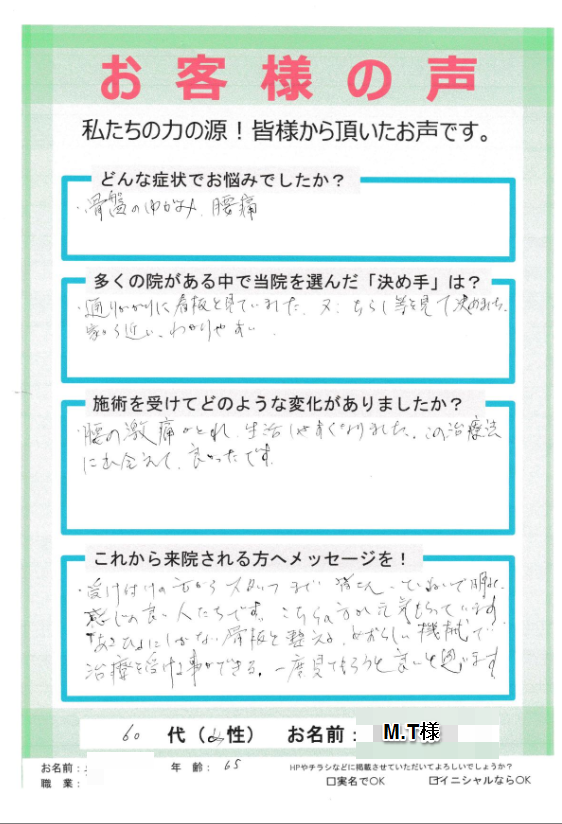 お客様の声
私たちの力の源！皆様から頂いたお声です。
どんな症状でお悩みでしたか？
・骨盤のゆがみ、腰痛
多くの院がある中で当院を選んだ「決め手」は？
・通りがかりに看板を見ていました。又、ちらし等を見て決めました。
家から近い、わかりやすい。
施術を受けてどのような変化がありましたか？
・腰の激痛がとれ、生活しやすくなりました。この治療法
に出会えて、良かったです。
これから来院される方へメッセージを！
・受け付けの方からスタッフまで皆さん、ていねいで明るく
感じの良い人たちです。こちらの方が元気もらっています。
あさひ にしかない骨板を整える、めずらしい機械で
治療を受ける事ができる。一度見てもらうと良いと思います
60 代（女性） お名前： M.T様
お名前：
年 齢： 65
HPやチラシなどに掲載させていただいてよろしいでしょうか？
職 業：
□実名でOK ☑イニシャルならOK